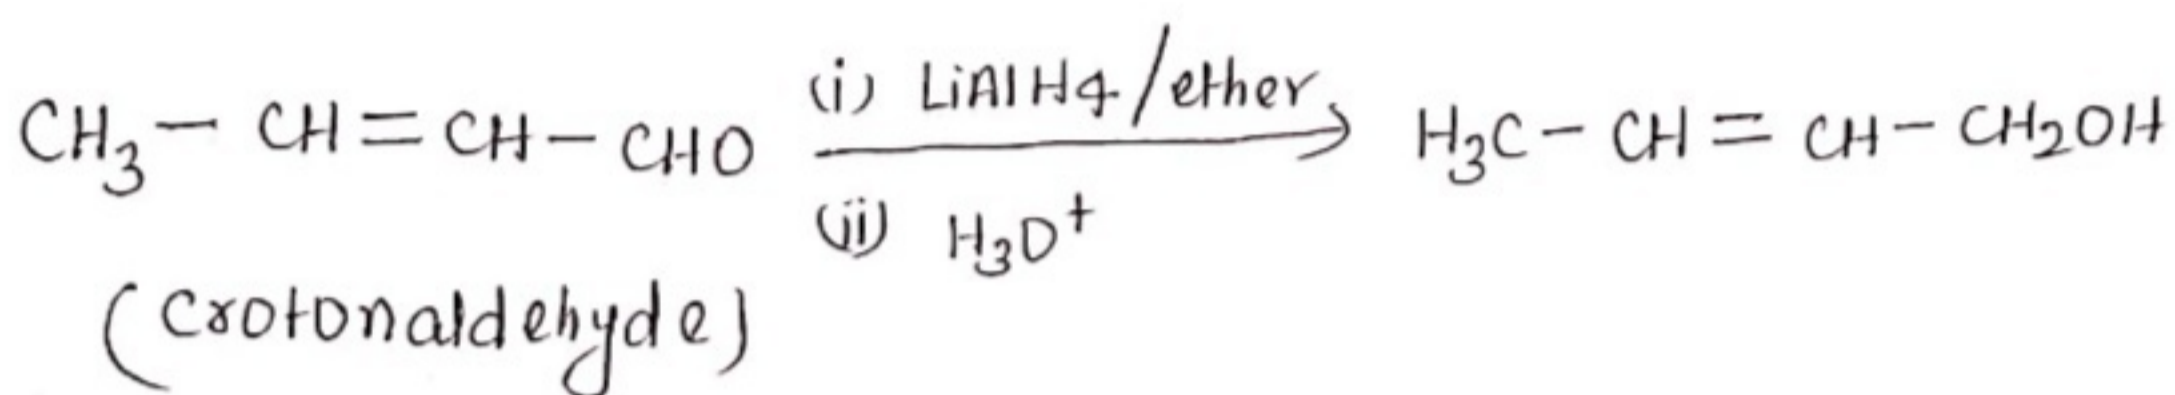 CH3 - CH = CH - CHO (i) LiAlH4/ether (ii) H3O+ → H3C - CH = CH - CH2OH
(Crotonaldehyde)